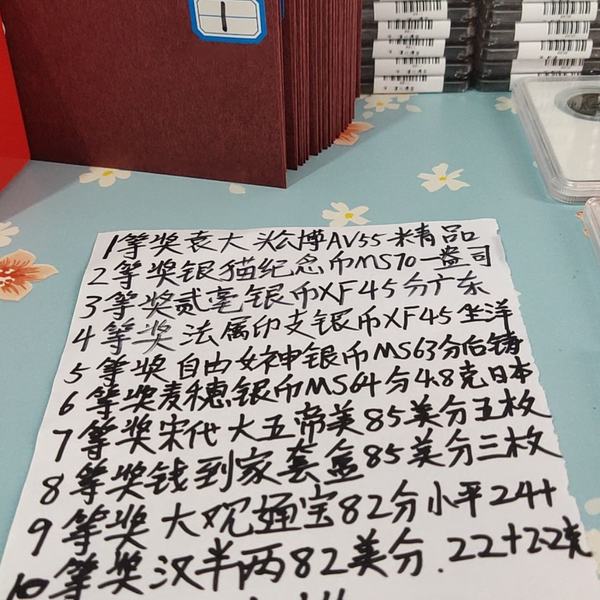 1
1等奖袁大头公博AV55精品
2等奖银猫纪念币MS70一盎司
3等奖贰毫银币XF45分广东
4等奖法属印支银币XF45坐洋
5等奖自由女神银币MS63分后铸
6等奖麦穗银币MS64分4.8克日本
7等奖宋代大五帝美85美分五枚
8等奖钱到家套盒85美分三枚
9等奖大观通宝82分小平24+
10等奖汉半两82美分.22+2.2克